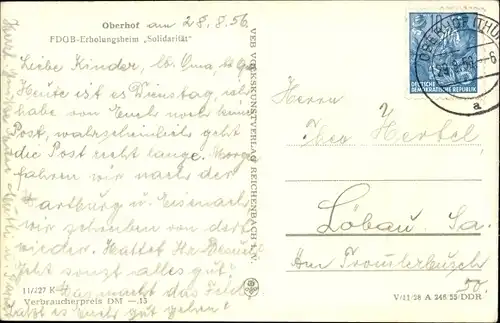 Oberhof am 28.8.56
FDGB-Erholungsheim „Solidarität"
Liebe Kinder, lb. Oma, lb. Opa
Heute ist es Dienstag, ich
habe von Euch noch keine
Post, wahrscheinlich geht
die Post recht lange. Morgen
fahren wir nach der
Wartburg u. Eisenach
wir schreiben von dort
wieder. Hattet Ihr
Geht sonst alles gut?
Was macht das Feld
11/427 K
Verbraucherpreis DM —.15
VEB VOLKSKUNSTVERLAG REICHENBACH I. V.
DEUTSCHE
DEMOKRATISCHE REPUBLIK
OBERHOF (THÜR)
a
Herrn
Theo Hertel
Löbau Sa.
Am
50
V/11/28 A 246/55 DDR